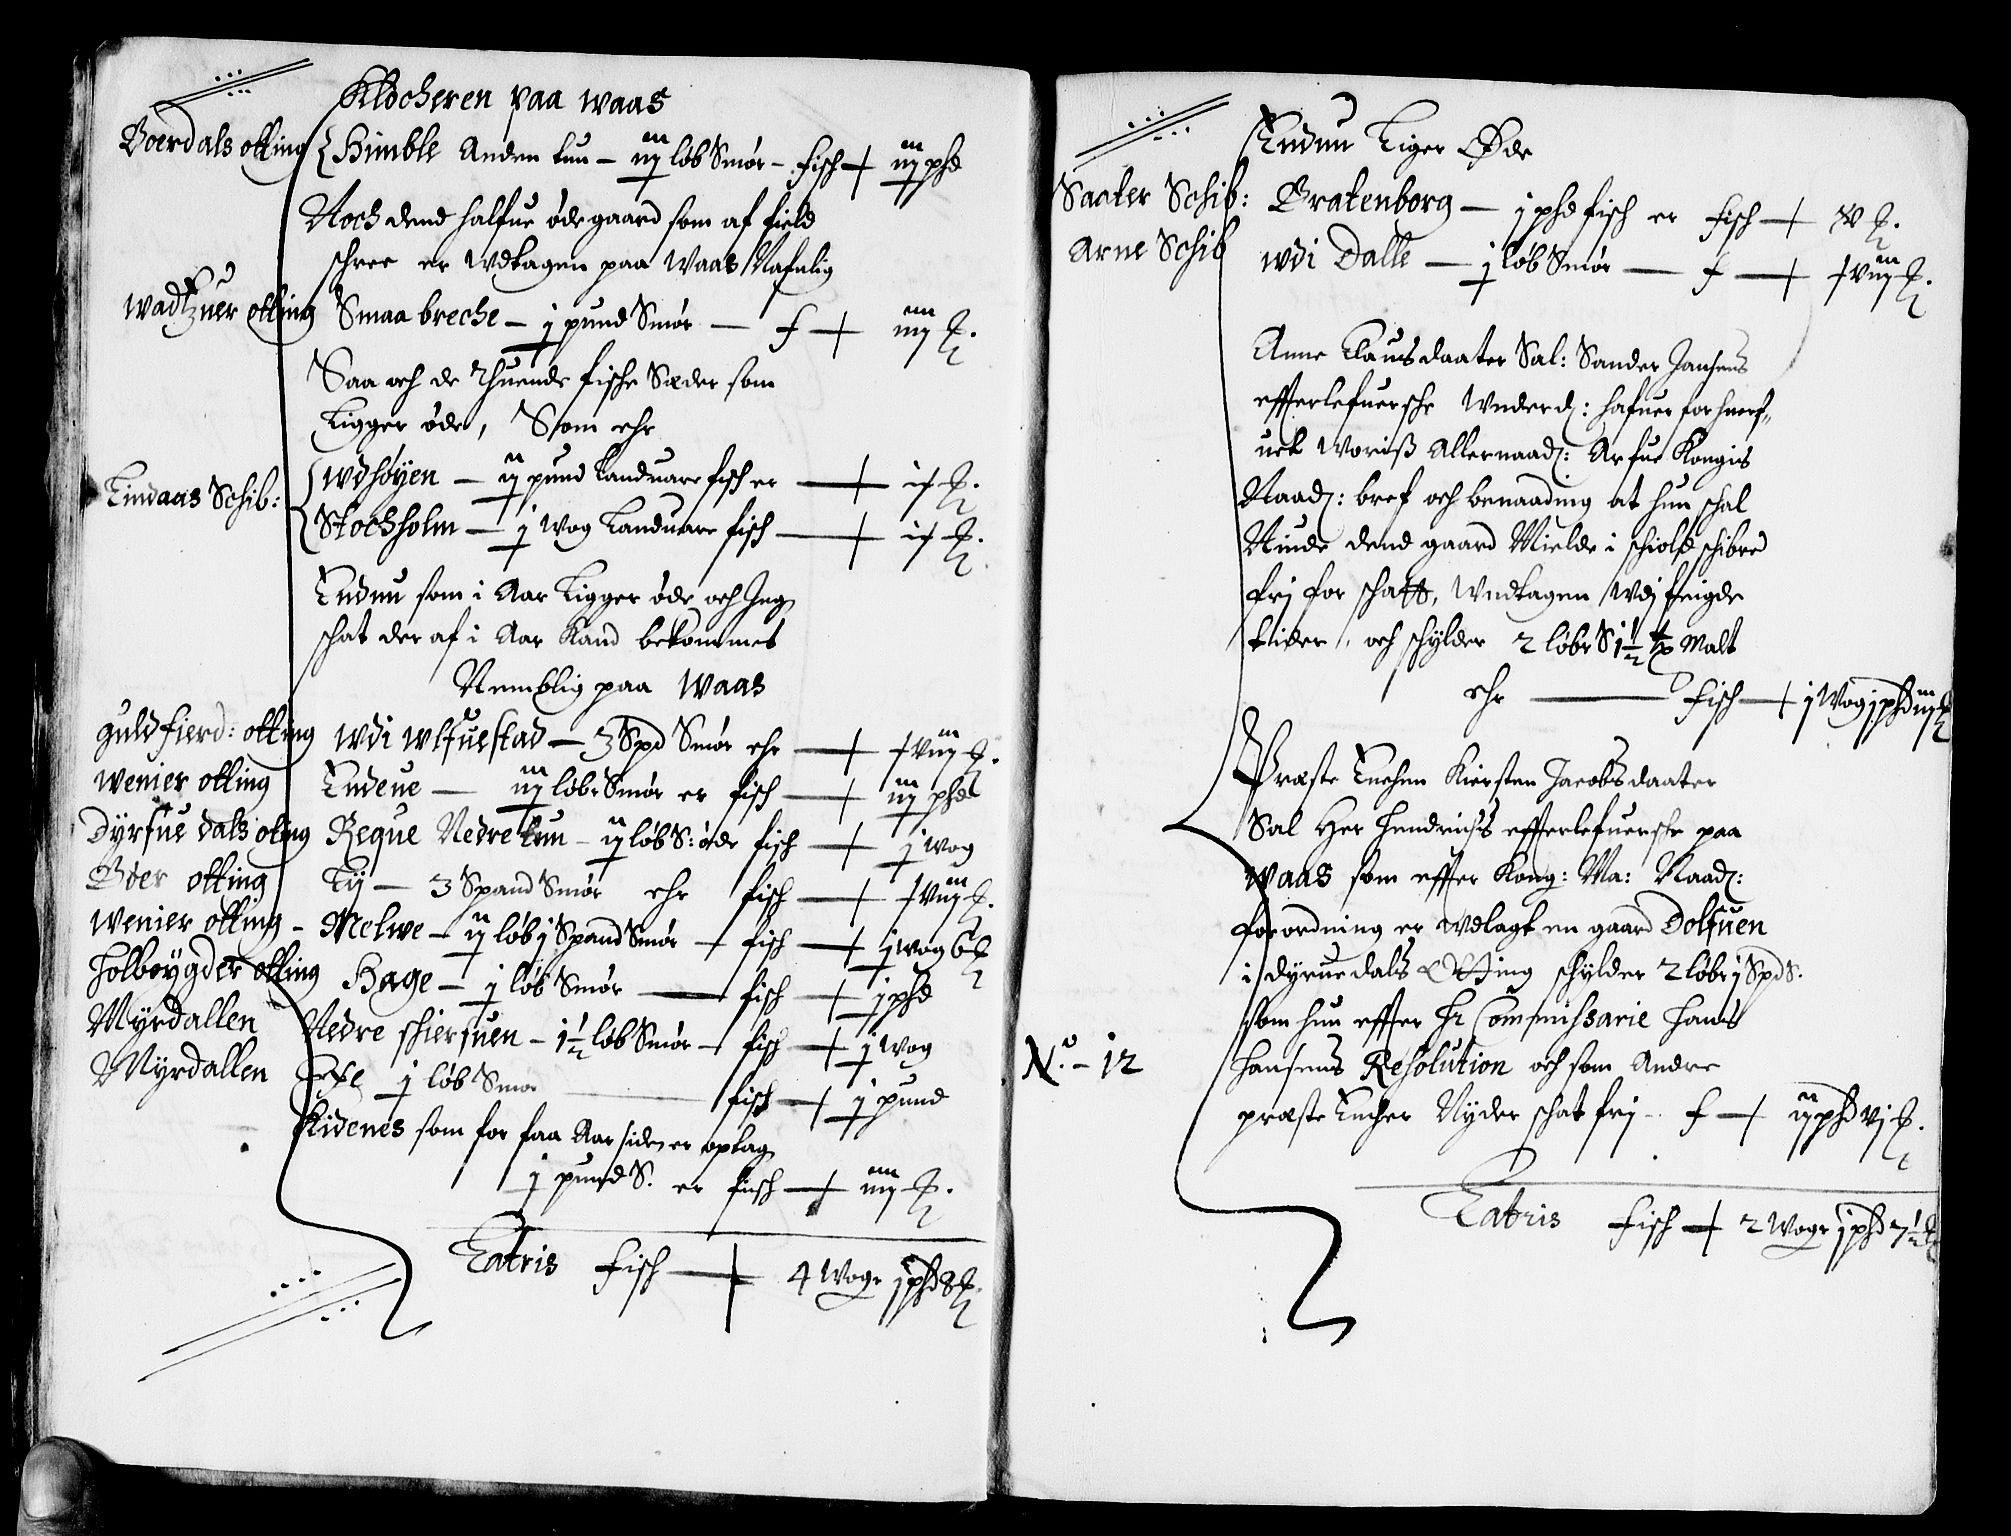 Klocheren paa waas
Boerdals otting Himble Anden tun - iij løb Smør - fisch iij phd
Noch dend halfue øde gaard som af field
schree er Wdtagen paa Waas Nafnlig
wadtzuer otting Smaa breche - j pund Smør - f iiij
Saa och de Thuende fische Sæder som
Ligger øde, Som ehr
Lindaas Schib: Wdhøyen - ij pund Landuare fisch er
Stockholm - j wog Landuare fisch
Endnu som i Aar Ligger øde och Ing
schat der af i Aar Kand bekommes
Nemblig paa Waas
guldfierd: otting Wdi Wlfuestad - 3 Spd Smør ehr
wenier otting Endeue - iij løbr Smør er fisch iij phd
Dyrfue dals oting Reque Nedre tun - ij løb S: øde fisch j wog
Oder otting Ly - 3 Spand Smør ehr fisch
wenier otting - Melwe - ij løb j Spand Smør fisch j wog 6
holbøygder otting Hage - j løb Smør fisch j phd
Myrdallen Nedre schierfuen - 1½ løb Smør fisch j wog
Myrdallen j løb Smør fisch j pund
Kidenes som for faa Aar siden er optag
j pund S. er fisch iiij
Latris fisch 4 Woge j phd 8
Endnu Liger Øde
Saater Schib: Bratenborg - j phd fisch er fisch
Arne Schib wdi Dalle - j løb Smør f
Anne Clausdaater Sal: Sander Jansens
effterlefuersche Wnderd: hafuer forhuerf-
uet Woriß Allernaad: Arfue Kongis
Naad: bref och benaading at hun schal
Niude dend gaard Mielde i schiold schibred
frj for schatt, Wndtagen Wdj feigde
tider, och schylder 2 løbr S 1½ Malt
ehr fisch j Wog j phd iij
Præste Enchen Kiersten Jacobsdaater
Sal Her Hendrichs effterlefuersche paa
Waas som effter Kong: Ma: Naad:
forordning er wdlagt en gaard Dolfuen
i dyruedals Otting schylder 2 løbr j Spd S.
som hun effter Hr Commissarie Hans
Hansens Resolution och som Andre
No. - 12
præste Encher Nyder schat frj - f ij phd vj
Latris fisch 2 Woge j phd 7½